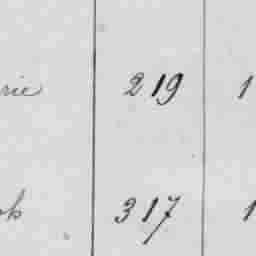 rie 219 1
ok 317 1